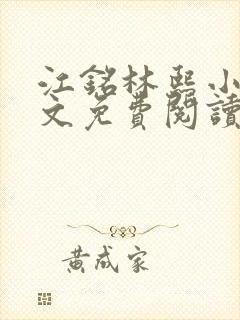 江銘林熙小
文免費閱讀
黃成家